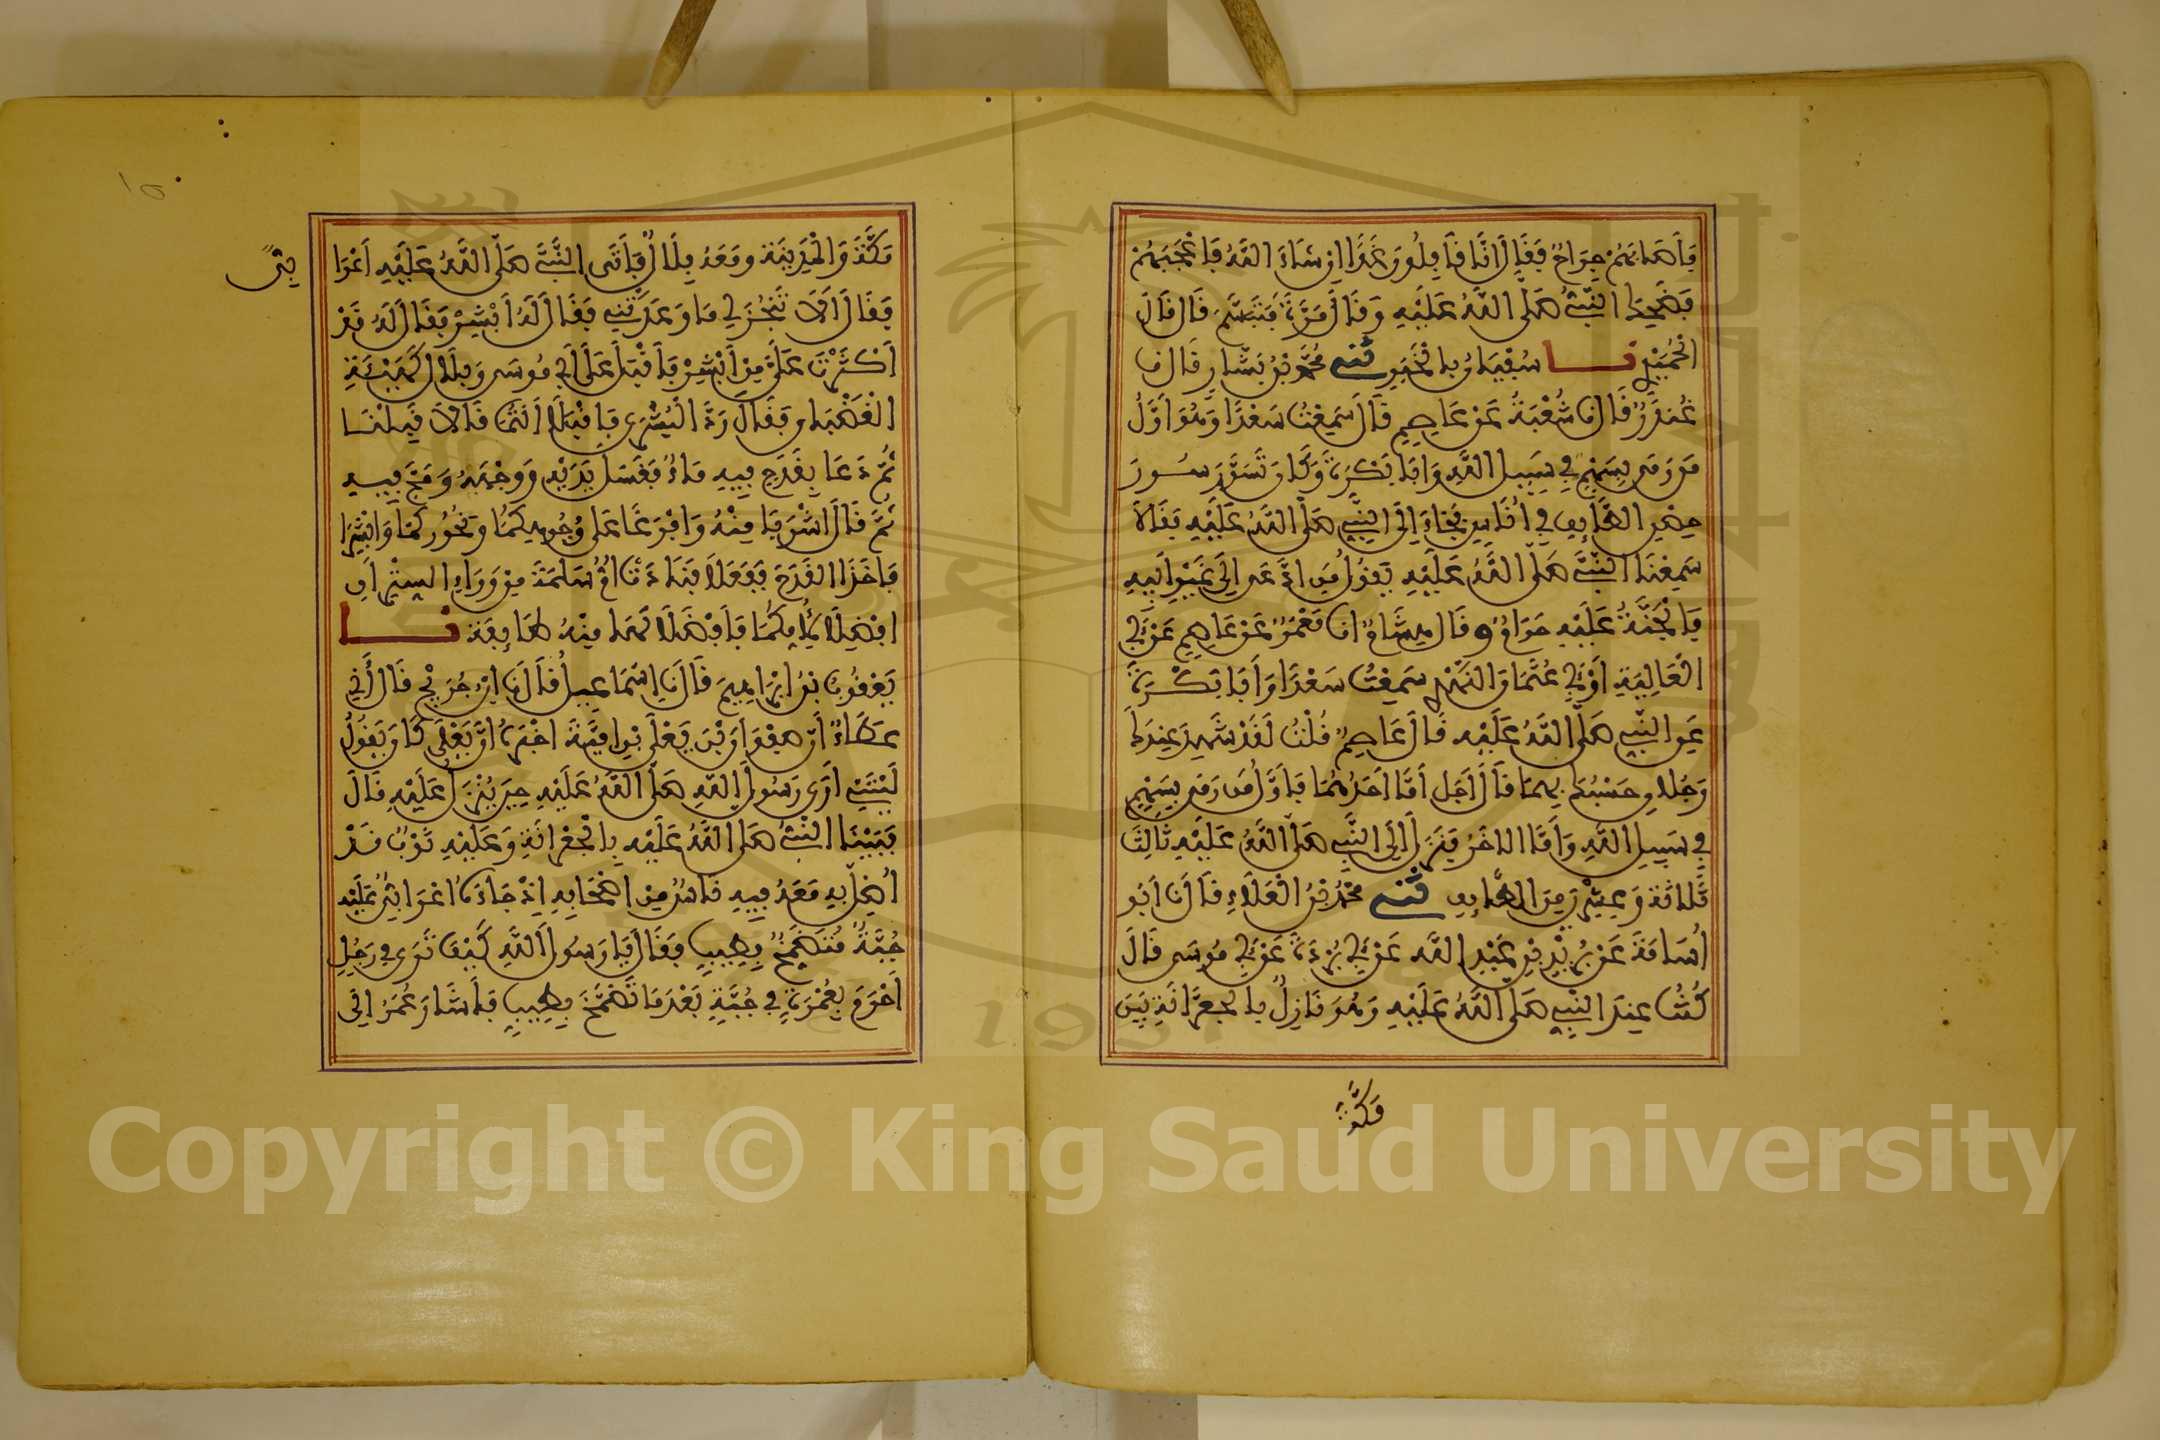 فَأَصَابَهُمْ جِرَاحٌ فَقَالَ إِنَّا قَافِلُونَ غَدًا إِنْ شَاءَ اللَّهُ فَأَعْجَبَهُمْ
فَضَحِكَ النَّبِيُّ صَلَّى اللَّهُ عَلَيْهِ وَقَالَ مَرَّةً فَتَبَسَّمَ قَالَ قَالَ
الْحُمَيْدِيُّ نا سُفْيَانُ بِالْخَبَرِ ثني مُحَمَّدُ بْنُ بَشَّارٍ قَالَ نا
غُنْدَرٌ قَالَ نا شُعْبَةُ عَنْ عَاصِمٍ قَالَ سَمِعْتُ سَعْدًا وَهُوَ أَوَّلُ
مَنْ رَمَى بِسَهْمٍ فِي سَبِيلِ اللَّهِ وَأَبَا بَكْرَةَ وَكَانَ تَسَوَّرَ سُورَ
حِصْنِ الطَّائِفِ فِي أُنَاسٍ فَجَاءَ إِلَى النَّبِيِّ صَلَّى اللَّهُ عَلَيْهِ فَقَالَا
سَمِعْنَا النَّبِيَّ صَلَّى اللَّهُ عَلَيْهِ يَقُولُ مَنِ ادَّعَى إِلَى غَيْرِ أَبِيهِ
فَالْجَنَّةُ عَلَيْهِ حَرَامٌ وَقَالَ هِشَامٌ أنا مَعْمَرٌ عَنْ عَاصِمٍ عَنْ أَبِي
الْعَالِيَةِ أَوْ أَبِي عُثْمَانَ النَّهْدِيِّ سَمِعْتُ سَعْدًا وَأَبَا بَكْرَةَ
عَنِ النَّبِيِّ صَلَّى اللَّهُ عَلَيْهِ قَالَ عَاصِمٌ قُلْتُ لَقَدْ شَهِدَ عِنْدَكَ
رَجُلَانِ حَسْبُكَ بِهِمَا قَالَ أَجَلْ أَمَّا أَحَدُهُمَا فَأَوَّلُ مَنْ رَمَى بِسَهْمٍ
فِي سَبِيلِ اللَّهِ وَأَمَّا الْآخَرُ فَنَزَلَ إِلَى النَّبِيِّ صَلَّى اللَّهُ عَلَيْهِ ثَالِثَ
ثَلَاثَةٍ وَعِشْرِينَ مِنَ الطَّائِفِ ثني مُحَمَّدُ بْنُ الْعَلَاءِ قَالَ نا أَبُو
أُسَامَةَ عَنْ بُرَيْدِ بْنِ عَبْدِ اللَّهِ عَنْ أَبِي بُرْدَةَ عَنْ أَبِي مُوسَى قَالَ
كُنْتُ عِنْدَ النَّبِيِّ صَلَّى اللَّهُ عَلَيْهِ وَهُوَ نَازِلٌ بِالْجِعِرَّانَةِ بَيْنَ
مَكَّةَ
مَكَّةَ وَالْمَدِينَةِ وَمَعَهُ بِلَالٌ فَأَتَى النَّبِيَّ صَلَّى اللَّهُ عَلَيْهِ أَعْرَا
بِيٌّ
فَقَالَ أَلَا تُنْجِزُ لِي مَا وَعَدْتَنِي فَقَالَ لَهُ أَبْشِرْ فَقَالَ لَهُ قَدْ
أَكْثَرْتَ عَلَيَّ مِنْ أَبْشِرْ فَأَقْبَلَ عَلَى أَبِي مُوسَى وَبِلَالٍ كَهَيْئَةِ
الْغَضْبَانِ فَقَالَ رَدَّ الْبُشْرَى فَاقْبَلَا أَنْتُمَا قَالَا قَبِلْنَا
ثُمَّ دَعَا بِقَدَحٍ فِيهِ مَاءٌ فَغَسَلَ يَدَيْهِ وَوَجْهَهُ وَمَجَّ فِيهِ
ثُمَّ قَالَ اشْرَبَا مِنْهُ وَأَفْرِغَا عَلَى وُجُوهِكُمَا وَنُحُورِكُمَا وَأَبْشِرَا
فَأَخَذَا الْقَدَحَ فَفَعَلَا فَنَادَتْ أُمُّ سَلَمَةَ مِنْ وَرَاءِ السِّتْرِ أَنْ
أَفْضِلَا لِأُمِّكُمَا فَأَفْضَلَا لَهَا مِنْهُ طَائِفَةً نا
يَعْقُوبُ بْنُ إِبْرَاهِيمَ قَالَ نا إِسْمَاعِيلُ قَالَ نا ابْنُ جُرَيْجٍ قَالَ أَخْبَرَنِي
عَطَاءٌ أَنَّ صَفْوَانَ بْنَ يَعْلَى بْنِ أُمَيَّةَ أَخْبَرَهُ أَنَّ يَعْلَى كَانَ يَقُولُ
لَيْتَنِي أَرَى رَسُولَ اللَّهِ صَلَّى اللَّهُ عَلَيْهِ حِينَ يُنْزَلُ عَلَيْهِ قَالَ
فَبَيْنَا النَّبِيُّ صَلَّى اللَّهُ عَلَيْهِ بِالْجِعْرَانَةِ وَعَلَيْهِ ثَوْبٌ قَدْ
أُظِلَّ بِهِ مَعَهُ فِيهِ نَاسٌ مِنْ أَصْحَابِهِ إِذْ جَاءَهُ أَعْرَابِيٌّ عَلَيْهِ
جُبَّةٌ مُتَضَمِّخٌ بِطِيبٍ فَقَالَ يَا رَسُولَ اللَّهِ كَيْفَ تَرَى فِي رَجُلٍ
أَحْرَمَ بِعُمْرَةٍ فِي جُبَّةٍ بَعْدَ مَا تَضَمَّخَ بِطِيبٍ فَأَشَارَ عُمَرُ إِلَى
Copyright © King Saud University